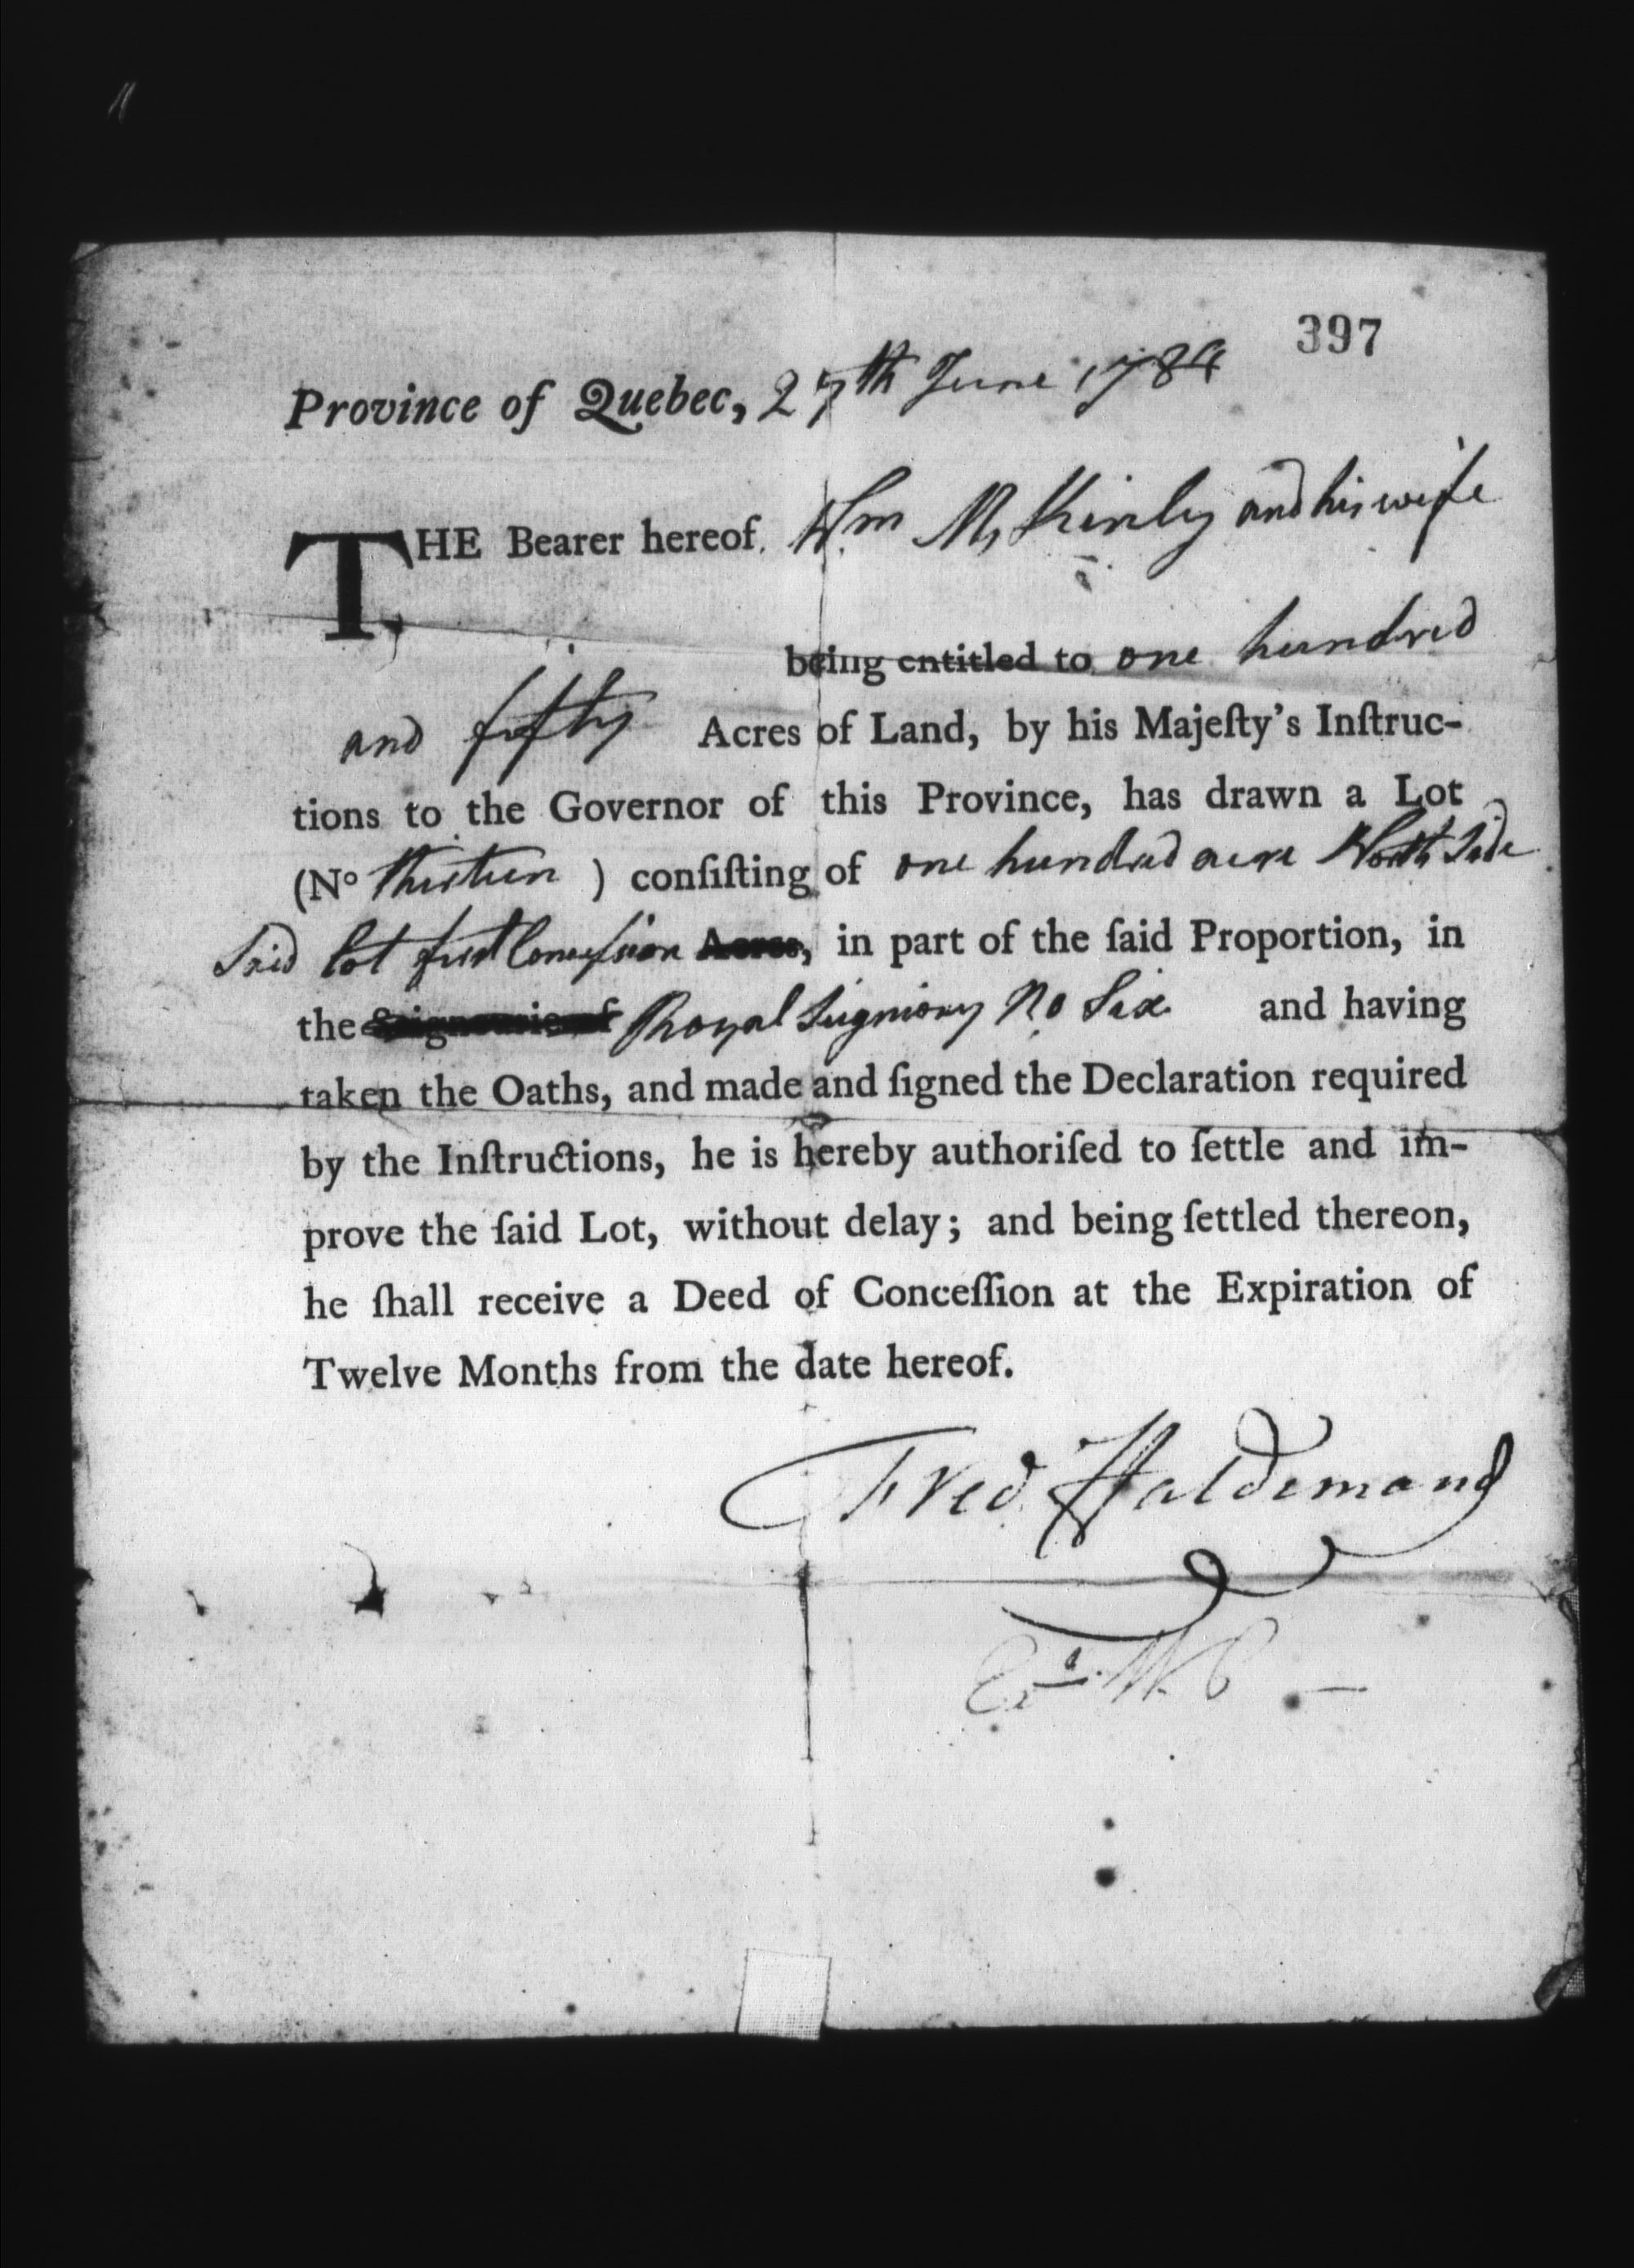 397
Province of Quebec, 27th June 1784
THE Bearer hereof Wm McKinly and his wife
being entitled to one hundred
and fifty Acres of Land, by his Majeſty's Inſtruc-
tions to the Governor of this Province, has drawn a Lot
(No thirteen ) conſiſting of one hundred acre North Side
Said lot first Conceſsion Acres, in part of the ſaid Proportion, in
the Seignourie of Royal Seigniory No Six and having
taken the Oaths, and made and ſigned the Declaration required
by the Inſtructions, he is hereby authoriſed to ſettle and im-
prove the ſaid Lot, without delay; and being ſettled thereon,
he ſhall receive a Deed of Conceſſion at the Expiration of
Twelve Months from the date hereof.
Fred Haldimand